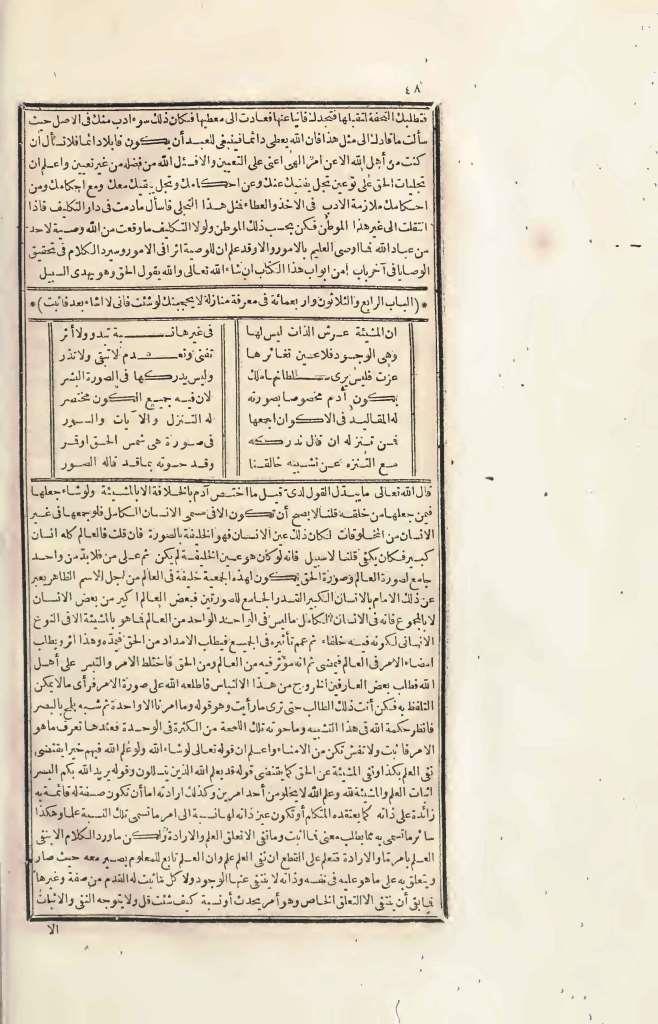 ٤٨
فتطلبك التحفة لتقبلها فتجدك فانيا عنها فعادت الى معطيها فكان ذلك سوء ادب منك فى الاصل حيث
سألت ما قادك الى مثل هذا فان الله يعطى دائما فينبغى للعبد أن يكون قابلا دائما فلا تسأل ان
كنت من أهل الله الا عن امر الهى اعنى على التعيين والا فسئل الله من فضله من غير تعيين واعلم ان
تجليات الحق على نوعين تجل يفنيك عنك وعن احكامك وتجل يبقيك معك ومع احكامك ومن
احكامك ملازمة الادب فى الاخذ والعطاء فمثل هذا التجلى فاسأل ما دمت فى دار التكليف فاذا
انتقلت الى غير هذا الموطن فكن بحسب ذلك الموطن ولولا التكليف ما وقعت من الله وصية لاحد
من عباد الله فما اوصى العليم بالامور والا وقد علم ان للوصية اثرا فى الامور وسيرد الكلام فى تحقيق
الوصايا فى آخر باب من ابواب هذا الكتاب ان شاء الله تعالى والله يقول الحق وهو يهدى السبيل
*(الباب الرابع والثلاثون واربعمائة فى معرفة منازلة لا يحجبنك لو شئت فانى لا اشاء بعد فاثبت)*
ان المشيئة عرش الذات ليس لها فى غيرها نسبة تبدو ولا أثر
وهى الوجود فلا عين تغايرها تفنى وتعدم لا تبقى ولا تذر
عزت فليس يرى سلطانها ملك وليس يدركها فى الصورة البشر
يكون آدم مخصوصا بصورته لان فيه جميع الكون مختصر
له المقاليد فى الاكوان اجمعها له التنزل والآيات والسور
فمن تنزله ان قال ندركه فى صورة هى شمس الحق او قمر
مع التنزه عن تشبيه خالقنا وقد حوته بما قد قاله الصور
قال الله تعالى ما يبدل القول لدى قيل ما اختص آدم بالخلافة الا بالمشيئة ولو شاء جعلها
فيمن جعلها من خلقه قلنا لا يصح أن تكون الا فى مسمى الانسان الكامل فلو جمعها فى غير
الانسان من المخلوقات لكان ذلك عين الانسان فهو الخليفة بالصورة فان قلت فالعالم كله انسان
كبير فكان يكفى قلنا لا سبيل فانه لو كان هو عين الخليفة لم يكن ثم على من فلا بد من واحد
جامع لصورة العالم وصورة الحق يكون لهذه الجمعية خليفة فى العالم من اجل الاسم الظاهر يعبر
عن ذلك الامام بالانسان الكبير القدر الجامع للصورتين فبعض العالم اكبر من بعض الانسان
لا بالمجموع فانه فى الانسان الكامل ما ليس فى الواحد الواحد من العالم فما هو بالمشيئة الا فى النوع
الانسانى لكونه فيه خلفاء ثم عم تأثيره فى الجميع فيطلب الامداد من الحق فيمده وهذا اثر ويطلب
امضاء الامر فى العالم فيمضى ثم انه مؤثر فيه من العالم ومن الحق فاختلط الامر والتبس على أهل
الله فطلب بعض العارفين الخروج من هذا الالتباس فاطلعه الله على صورة الامر فرأى ما لا يمكن
التلفظ به فكن أنت ذلك الطالب حتى ترى ما رأيت وهو قوله وما امرنا الا واحدة ثم شبه بلمح بالبصر
فانظر حكمة الله فى هذا التشبيه وما حوته تلك اللمحة من الكثرة فى الوحدة فعندها تعرف ما هو
الامر فاثبت ولا تفش تكن من الامناء واعلم ان قوله تعالى لو شاء الله ولو علم الله فيهم خيرا يقتضى
نفى العلم بكذا ونفى المشيئة عن الحق كما يقتضى قوله قد يعلم الله الذين يتسللون وقوله يريد الله بكم اليسر
اثبات العلم والمشيئة لله وعلم الله لا يخلو من أحد امرين وكذلك ارادته اما أن تكون صفة له قائمة به
زائدة على ذاته كما يعتقده المتكلم أو تكون عين ذاته لها نسبة الى امر ما تسمى تلك النسبة علما وهكذا
سائر ما تسمى به مما يطلب معنى فما اثبت وما نفى الا تعلق العلم والارادة ولكن ما ورد الكلام الا بنفى
العلم بامر ما والارادة فتعلم على القطع ان نفى العلم علم وان العلم تابع للمعلوم يصير معه حيث صار
ويتعلق به على ما هو عليه فى نفسه وذاته لا ينتفى عنها الوجود ولا كل ما ثبت له القدم من صفة وغيرها
فما بقى أن ينتفى الا التعلق الخاص وهو أمر يحدث أو نسبة كيف شئت قل ولا يتوجه النفى والاثبات
الا